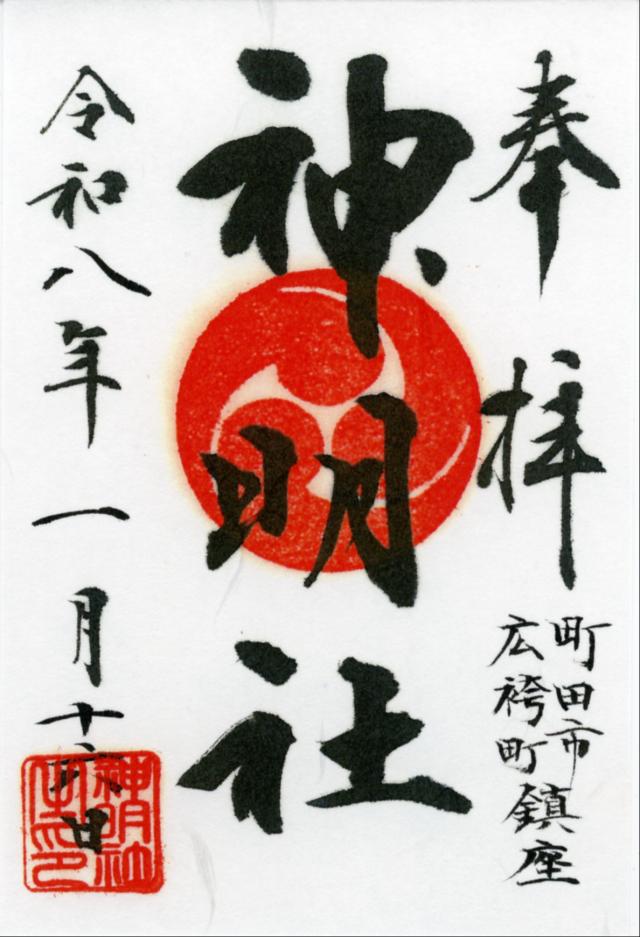 奉拝
町田市
広袴町鎮座
神明社
令和八年一月十六日
神明社
之印